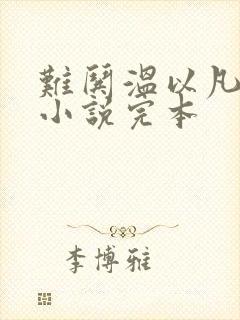 難鬨温以凡
小說完本
李博雅